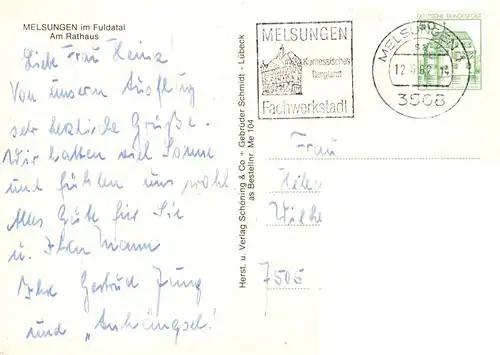 MELSUNGEN im Fuldatal
Am Rathaus
Liebe Frau Heinz!
Von unserm Ausflug
sehr herzliche Grüße.
Wir hatten viel Sonne
und fühlen uns wohl.
Alles Gute für Sie
u. Ihren Mann
Ihre Gertrud Jung
und "Anhängsel!"
Herst. u. Verlag Schöning & Co + Gebrüder Schmidt - Lübeck
as Bestellnr. Me 104
MELSUNGEN
Kurhessisches
Bergland
Fachwerkstadt
MELSUNGEN 1
12.
82-14
3508
DEUTSCHE BUNDESPOST
Frau
7505